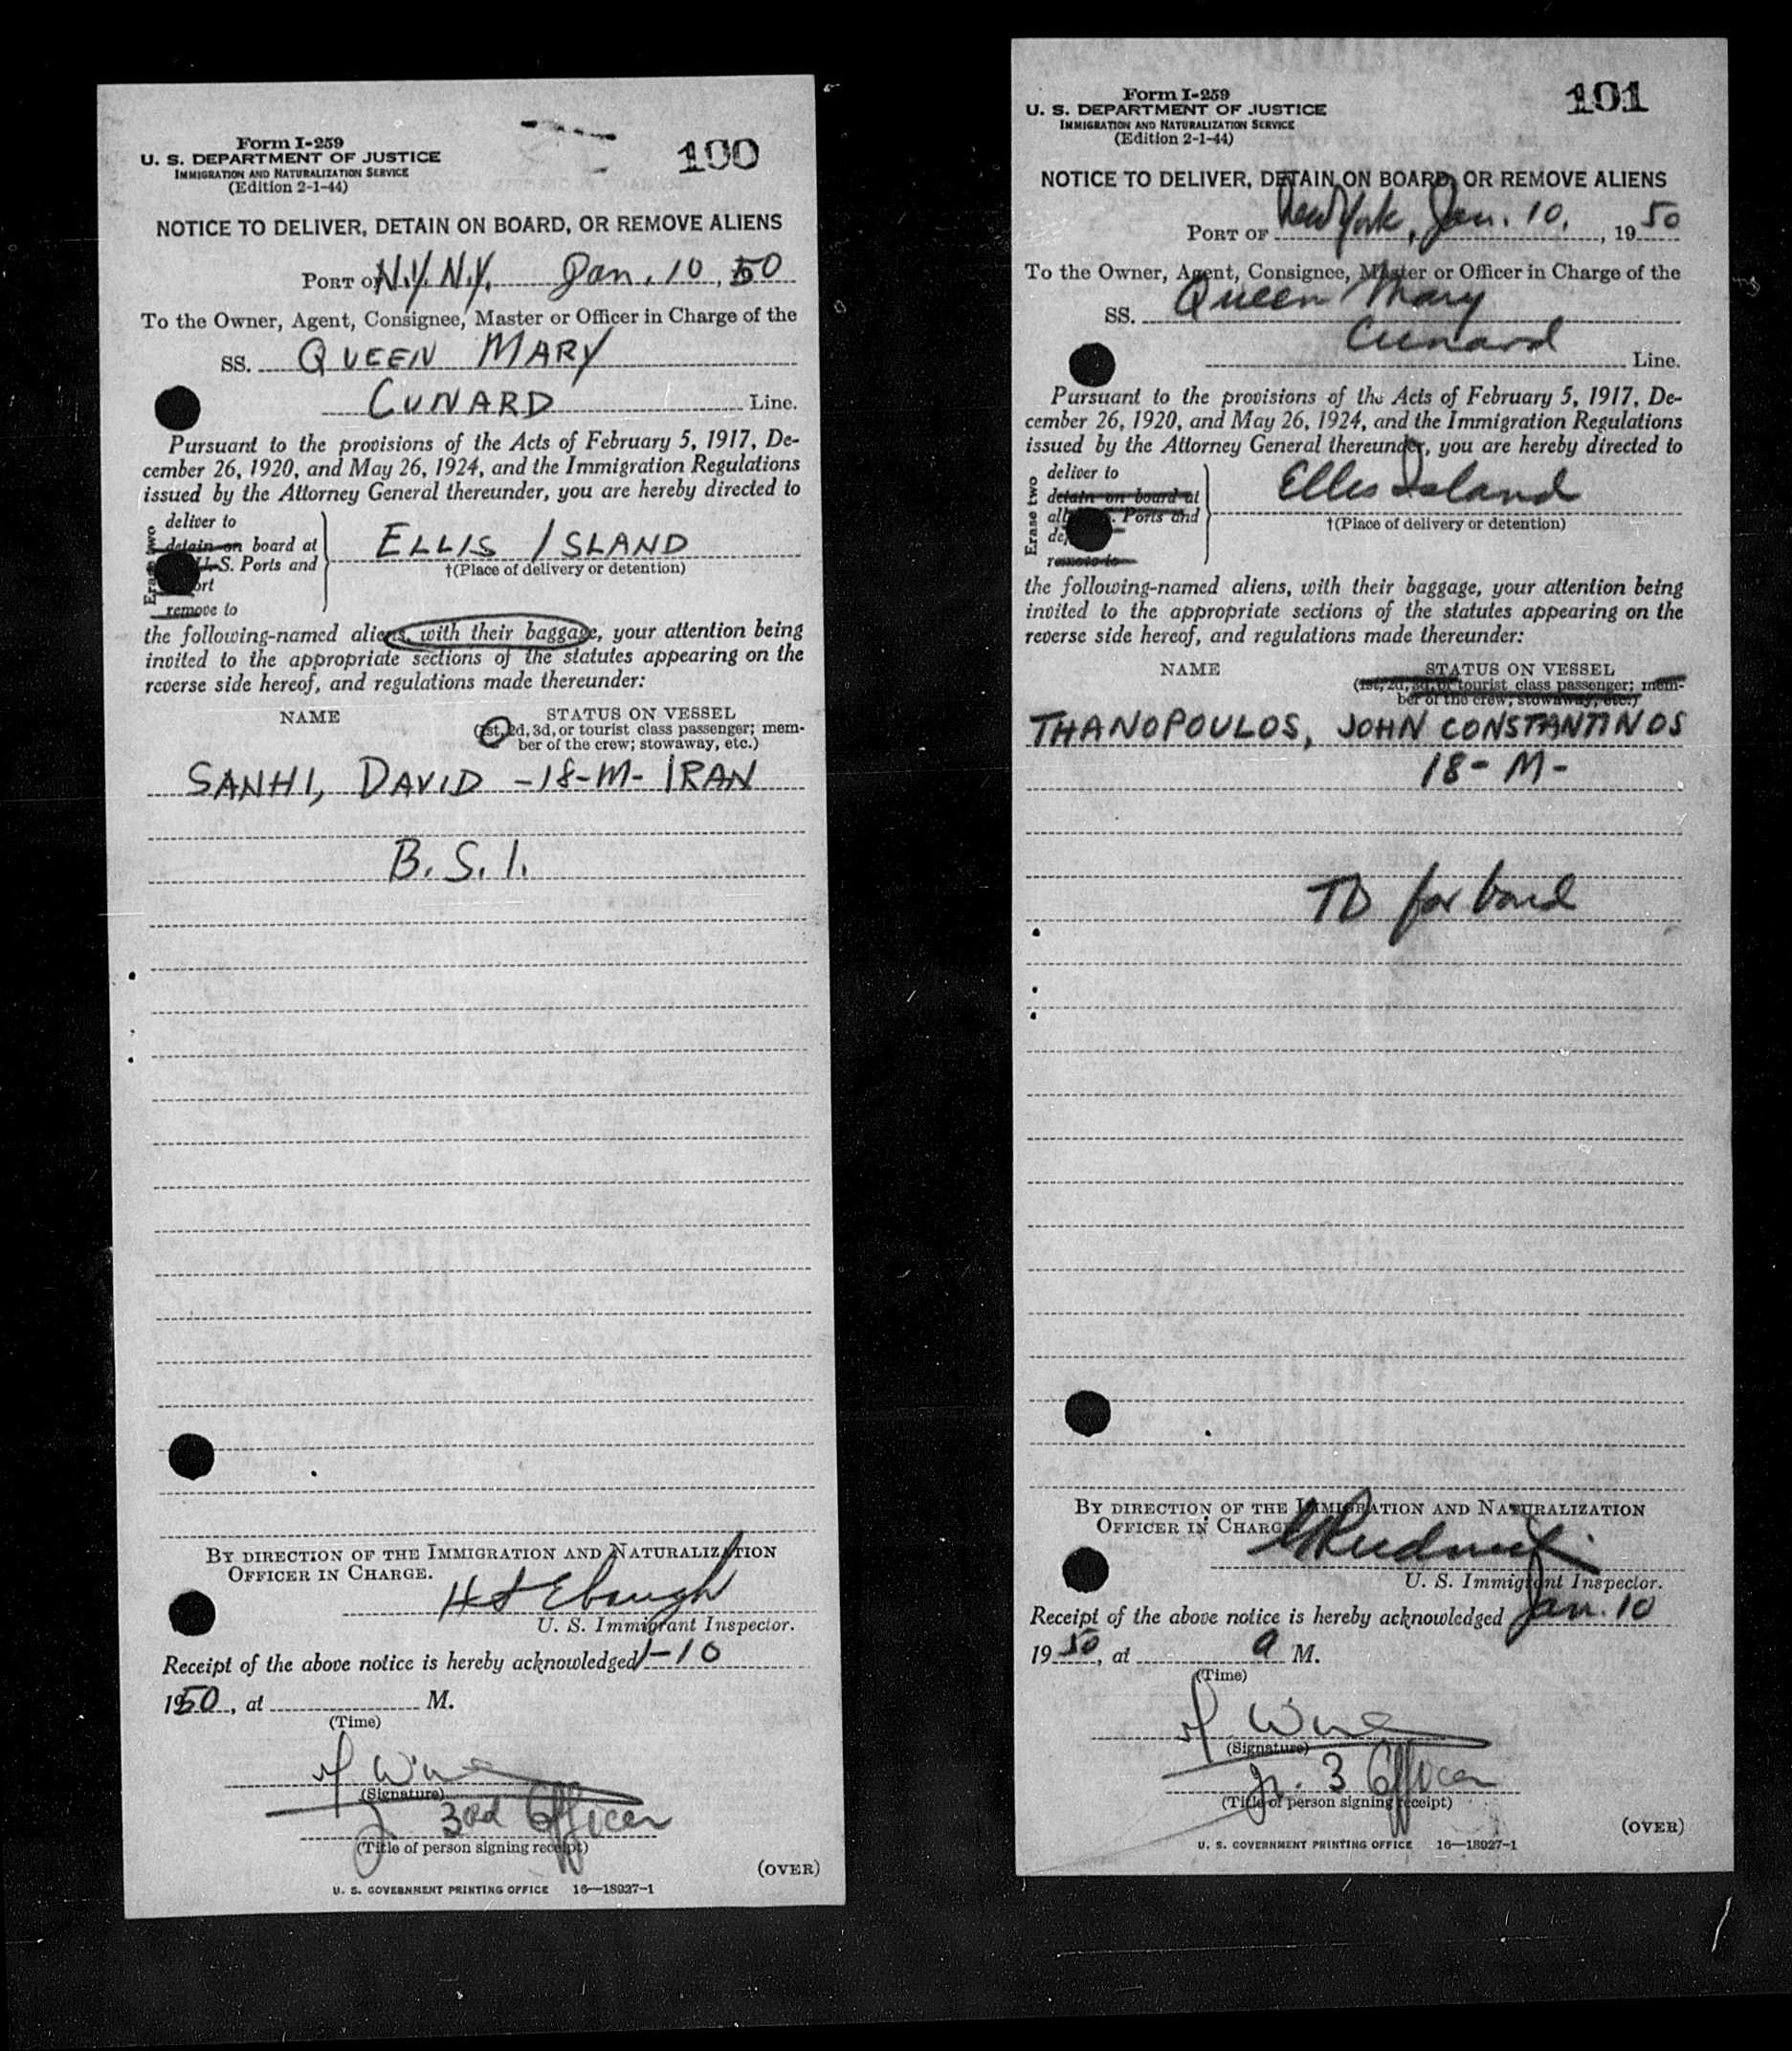 Form I-259
U. S. DEPARTMENT OF JUSTICE
IMMIGRATION AND NATURALIZATION SERVICE
(Edition 2-1-44)
100
NOTICE TO DELIVER, DETAIN ON BOARD, OR REMOVE ALIENS
PORT OF N.Y. N.Y. Jan. 10, 50
To the Owner, Agent, Consignee, Master or Officer in Charge of the
SS. QUEEN MARY
CUNARD Line.
Pursuant to the provisions of the Acts of February 5, 1917, De-
cember 26, 1920, and May 26, 1924, and the Immigration Regulations
issued by the Attorney General thereunder, you are hereby directed to
Erase two
deliver to
detain on board at
U. S. Ports and
ort
remove to
ELLIS ISLAND
†(Place of delivery or detention)
the following-named aliens, with their baggage, your attention being
invited to the appropriate sections of the statutes appearing on the
reverse side hereof, and regulations made thereunder:
NAME
STATUS ON VESSEL
(1st, 2d, 3d, or tourist class passenger; mem-
ber of the crew; stowaway, etc.)
SANHI, DAVID -18-M- IRAN
B. S. I.
BY DIRECTION OF THE IMMIGRATION AND NATURALIZATION
OFFICER IN CHARGE.
Ebaugh
U. S. Immigrant Inspector.
Receipt of the above notice is hereby acknowledged 1-10
1950, at M.
(Time)
(Signature)
3rd Officer
(Title of person signing receipt)
(OVER)
U. S. GOVERNMENT PRINTING OFFICE 16—18927-1
Form I-259
U. S. DEPARTMENT OF JUSTICE
IMMIGRATION AND NATURALIZATION SERVICE
(Edition 2-1-44)
101
NOTICE TO DELIVER, DETAIN ON BOARD, OR REMOVE ALIENS
PORT OF New York, Jan. 10, , 1950
To the Owner, Agent, Consignee, Master or Officer in Charge of the
SS. Queen Mary
Cunard Line.
Pursuant to the provisions of the Acts of February 5, 1917, De-
cember 26, 1920, and May 26, 1924, and the Immigration Regulations
issued by the Attorney General thereunder, you are hereby directed to
Erase two
deliver to
detain on board at
all Ports and
de
remove to
Ellis Island
†(Place of delivery or detention)
the following-named aliens, with their baggage, your attention being
invited to the appropriate sections of the statutes appearing on the
reverse side hereof, and regulations made thereunder:
NAME
STATUS ON VESSEL
(1st, 2d, 3d, or tourist class passenger; mem-
ber of the crew; stowaway, etc.)
THANOPOULOS, JOHN CONSTANTINOS
18- M-
TD for bond
BY DIRECTION OF THE IMMIGRATION AND NATURALIZATION
OFFICER IN CHARGE
U. S. Immigrant Inspector.
Receipt of the above notice is hereby acknowledged Jan. 10
1950, at a M.
(Time)
(Signature)
Jr. 3 Officer
(Title of person signing receipt)
(OVER)
U. S. GOVERNMENT PRINTING OFFICE 16—18927-1